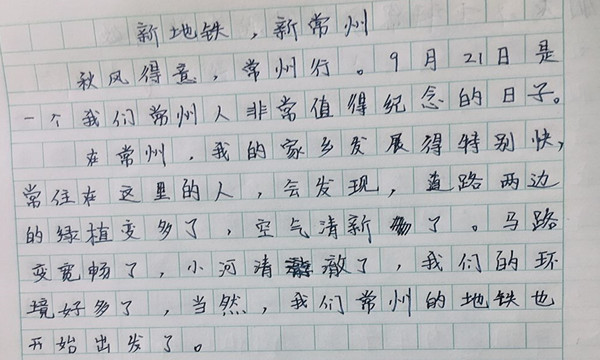 新地铁，新常州
秋风得意，常州行。9月21日是
一个我们常州人非常值得纪念的日子。
在常州，我的家乡发展得特别快，
常住在这里的人，会发现，道路两边
的绿植变多了，空气清新了。马路
变宽畅了，小河清澈了，我们的环
境好多了，当然，我们常州的地铁也
开始出发了。